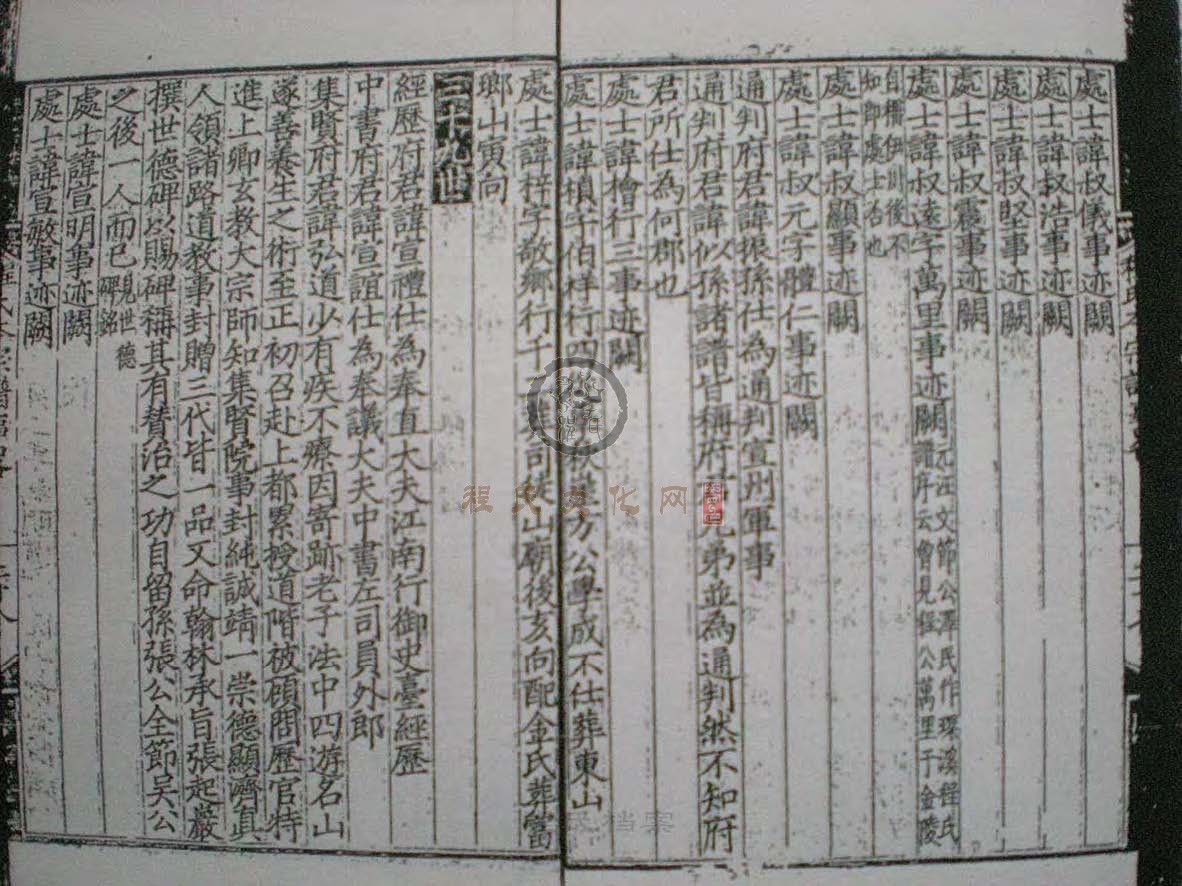 處士諱叔儀事迹闕
處士諱叔浩事迹闕
處士諱叔堅事迹闕
處士諱叔震事迹闕
處士諱叔遠字萬里事迹闕譜序云曾見經八公萬里于金陵
阮江文節公澤民作環溪程氏
自稱伊川後不
知即處士否也
處士諱叔顯事迹闕
處士諱叔元字體仁事迹闕
通判府君諱振孫仕為通判宣州軍事
通判府君諱似孫諸譜皆稱府君兄弟並為通判然不知府
君所仕為何郡也
處士諱檜行三事迹闕
處士諱楨字伯祥行四 方公學成不仕葬東山
處士諱梓字敬鄉行千 司 山廟後亥向配金氏葬當
鄉山寅向
三十九世
經歷府君諱宣禮仕為奉直大夫江南行御史臺經歷
中書府君諱宣誼仕為奉議大夫中書左司員外郎
集賢府君諱弘道少有疾不療因寄跡老子法中四游名山
遂善養生之術至正初召赴上都累授道階被顧問歷官特
進上卿玄教大宗師知集賢院事封純誠靖一崇德顯濟真
人領諸路道教事封贈三代皆一品又命翰林承旨張起巖
撰世德碑以賜碑稱其有替治之功自留孫張公全節吳公
之後一人而已見世德
碑銘
處士諱宣明事迹闕
處士諱宣敏事迹闕
程氏文化网